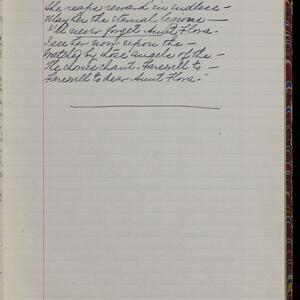 She reaps reward in endless —
Way her the eternal legions —
I'll never forget Aunt Flora.
I see her now upon the —
Watched by those angels of the —
The chorus chant. Farewell to —
Farewell to dear Aunt Flora."